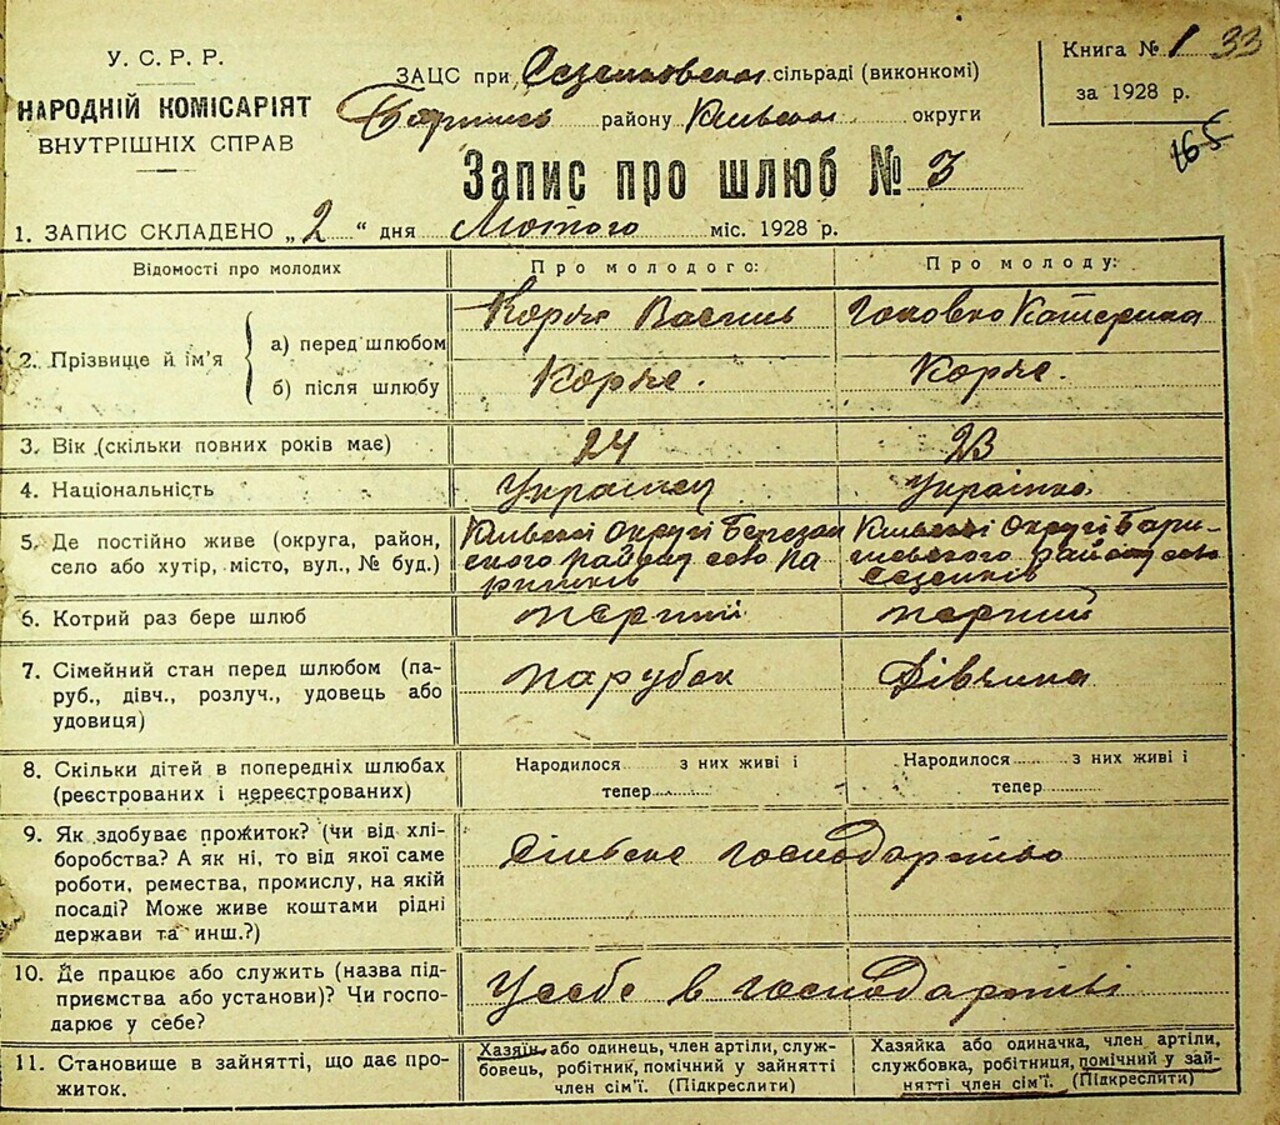 У. С. Р. Р.
НАРОДНІЙ КОМІСАРІЯТ
ВНУТРІШНІХ СПРАВ
ЗАЦС при Сезенковской сільраді (виконкомі)
Баришев району Київской округи
Книга № 1 33
за 1928 р.
165
Запис про шлюб № 3
1. ЗАПИС СКЛАДЕНО „2“ дня Лютого міс. 1928 р.
Відомості про молодих
Про молодого:
Про молоду:
2. Прізвище й ім'я
а) перед шлюбом
Корж Василь
Головко Катерина
б) після шлюбу
Корже.
Корже.
3. Вік (скільки повних років має)
24
23
4. Національність
Українец
Українка
5. Де постійно живе (округа, район,
село або хутір, місто, вул., № буд.)
Київскої Округі Березан
ского Району село Па
ришків
Київскої Округі Бари-
шевского Району село
Сезенків
6. Котрий раз бере шлюб
перший
перший
7. Сімейний стан перед шлюбом (па-
руб., дівч., розлуч., удовець або
удовиця)
парубок
Дівчина
8. Скільки дітей в попередніх шлюбах
(реєстрованих і нереєстрованих)
Народилося з них живі і
тепер
Народилося з них живі і
тепер
9. Як здобуває прожиток? (чи від хлі-
боробства? А як ні, то від якої саме
роботи, ремества, промислу, на якій
посаді? Може живе коштами рідні
держави та инш.?)
Сільське господарство
10. Де працює або служить (назва під-
приємства або установи)? Чи госпо-
дарює у себе?
У себе в господарстві
11. Становище в зайнятті, що дає про-
житок.
Хазяїн або одинець, член артіли, служ-
бовець, робітник, помічний у зайнятті
член сім'ї. (Підкреслити)
Хазяйка або одиначка, член артіли,
службовка, робітниця, помічний у зай-
нятті член сім'ї. (Підкреслити)